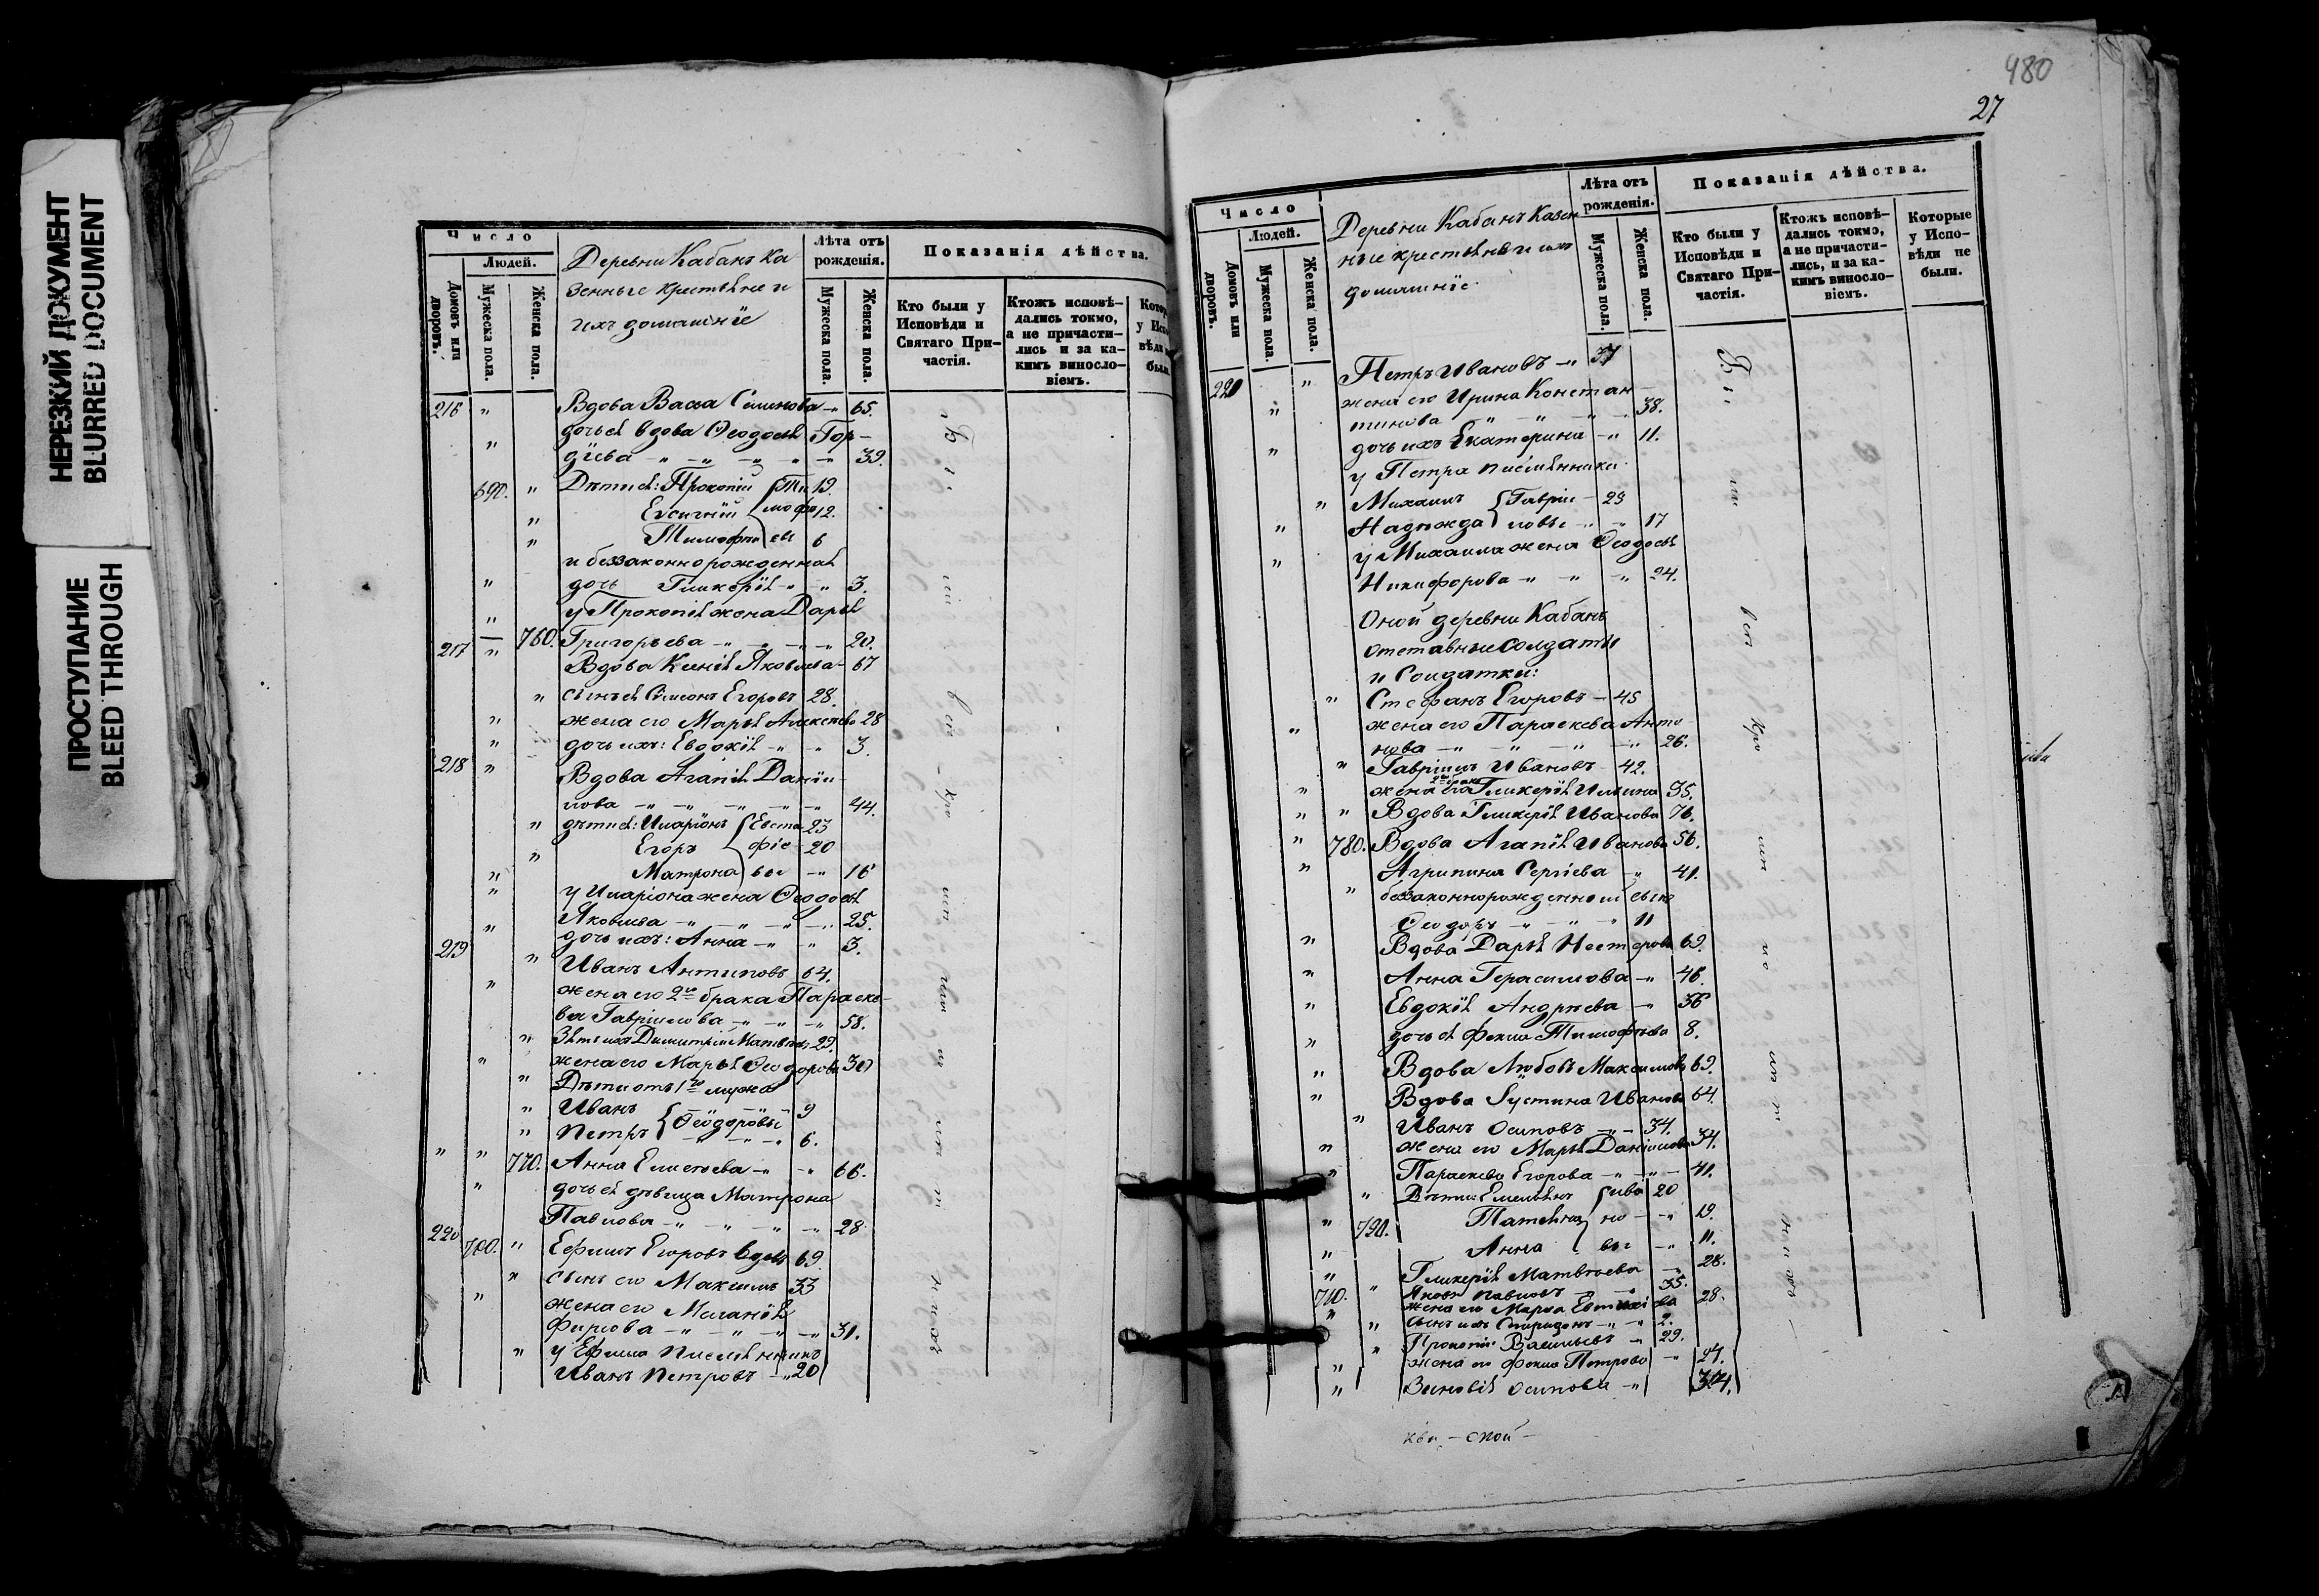 НЕРЕЗКИЙ ДОКУМЕНТ
BLURRED DOCUMENT
ПРОСТУПАНИЕ
BLEED THROUGH
Число
Людей.
Домовъ или дворовъ.
Мужеска пола.
Женска пола.
Деревни Кабанъ ка
зенные крестьяне и
ихъ домашніе
Лѣта отъ рожденія.
Мужеска пола.
Женска пола.
Показанія дѣйства.
Кто были у Исповѣди и Святаго Причастія.
Ктожъ исповѣ-
дались токмо,
а не причасти-
лись и за ка-
кимъ виносло-
віемъ.
216 " Вдова Васса Симонова -"- 65.
" дочь ея вдова Ѳеодосія Гор-
діева -"- -"- -"- 39.
690. " Дѣти ея: Прокопій {Ти 19.
" Евсигній {мофе 12.
" Тимофей {евы 6
и беззаконнорожденная
" дочь Гликерія -"- 3.
" у Прокопія жена Дарья
760. Григорьева -"- -"- 20.
217 " Вдова Ксенія Яковлева - 67
" сынъ ея Симеонъ Егоровъ 28.
" жена его Марья Алексѣева 28
" дочь ихъ: Евдокія -"- 3.
218 " Вдова Агапія Даніи-
лова -"- -"- -"- 44.
" дѣти ея: Иларіонъ {Евста- 23
" Егоръ {фіе- 20
" Матрона {вы -"- 16
" у Иларіона жена Ѳеодосія
Яковлева -"- -"- 25.
" дочь ихъ: Анна -"- 3.
219 " Иванъ Антиповъ 64.
" жена его 2го брака Параске-
ва Гавріилова -"- -"- 58.
" Зять ихъ Димитрій Матвѣевъ 29
" жена его Марья Ѳеодорова 30
" Дѣти отъ 1го мужа
" Иванъ {Ѳеодоровы 9
" Петръ 6.
" " 770. Анна Елисѣева -"- 66.
" дочь ея дѣвица Матрона
Павлова -"- -"- 28.
220 700. " Ефимъ Егоровъ вдовъ 69
" сынъ его Максимъ 33
" жена его Меланія
Фирсова -"- -"- 31.
" у Ефима письмянникъ
Иванъ Петровъ -"- 20
480
27
Число
Людей.
Домовъ или дворовъ.
Мужеска пола.
Женска пола.
Деревни Кабанъ Казен
ные крестьяне и ихъ
домашніе.
Лѣта отъ рожденія.
Мужеска пола.
Женска пола.
Показанія дѣйства.
Кто были у Исповѣди и Святаго Причастія.
Ктожъ исповѣ-
дались токмо,
а не причасти-
лись, и за ка-
кимъ виносло-
віемъ.
Которые у Испо-
вѣди не были.
221 " Петръ Ивановъ -"- 37
" жена его Ирина Констан-
тинова " " 38.
" дочь ихъ Екатерина -"- 11.
у Петра письмянники
" Михаилъ {Гавріи- 23
" Надежда {ловы -"- 17
" у Михаила жена Ѳеодосья
Никифорова -"- -"- 24.
Оной деревни Кабанъ
отставные солдаты
и Солдатки:
" Стефанъ Егоровъ - 45
" жена его Параскева Анто
нова -"- -"- 26.
" Гавріилъ Ивановъ - 42.
" жена его 2го брака Гликерія Ильина 35.
" " Вдова Гликерія Иванова 76.
" 780. Вдова Агапія Иванова 56.
" Агрипина Сергіева -"- 41.
" беззаконнорожденный сынъ
Ѳеодоръ -"- -"- 11
" Вдова Дарья Нестерова 69.
" Анна Герасимова -"- 46.
" Евдокія Андреева -"- 36
" дочь ея Фекла Тимофѣева 8.
" Вдова Любовь Максимова 69.
" Вдова Іустина Иванова 64.
" Иванъ Осиповъ -"- 34.
" жена его Марья Даніилова 34.
" Параскева Егорова -"- 41.
" Дѣти: Емельянъ {ива 20
" 790. Татьяна {но -"- 19.
" Анна {вы -"- 11.
" Гликерія Матвѣева -"- 28.
710. " Яковъ Павловъ -"- 35.
" жена его Марѳа Евтихіева 28.
" сынъ ихъ Спиридонъ -"- 2.
" Прокопій Васильевъ -"- 29.
" жена его Фекла Петрова -"- 27.
" Зиновія Осипова -"- 34.